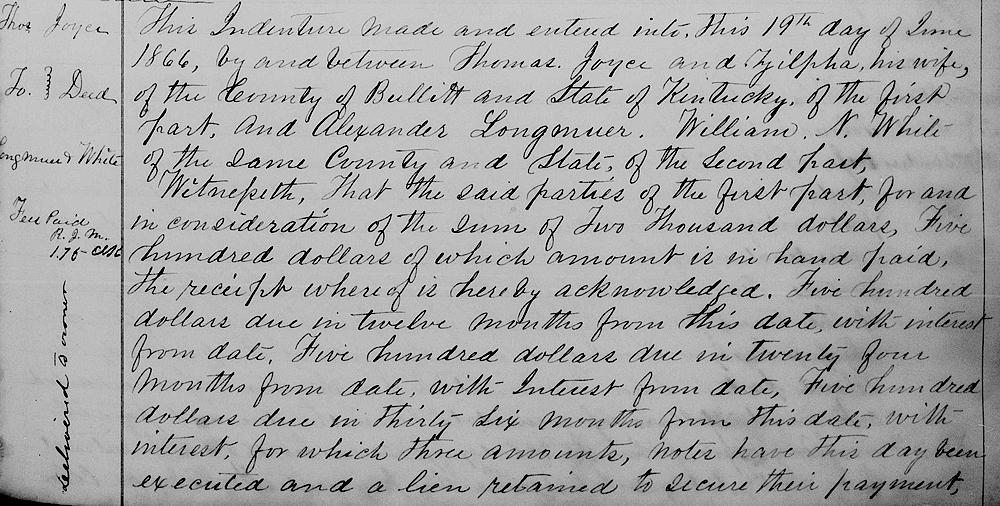 Thos Joyce
To. } Deed
Longmuer & White
Fee Paid
R. J. M.
1.75 Clk
delivered to owner
This Indenture made and entered into, this 19th day of June
1866, by and between Thomas. Joyce and Zilpha, his wife,
of the County of Bullitt and State of Kentucky, of the first
part, and Alexander Longmuer. William. N. White
of the same County and State, of the second part,
Witnesseth, That the said parties of the first part, for and
in consideration of the sum of Two Thousand dollars, Five
hundred dollars of which amount is in hand paid,
the receipt whereof is hereby acknowledged. Five hundred
dollars due in twelve months from this date, with interest
from date, Five hundred dollars due in twenty four
months from date, with Interest from date, Five hundred
dollars due in thirty six months from this date, with
interest, for which three amounts, notes have this day been
executed and a lien retained to secure their payment,